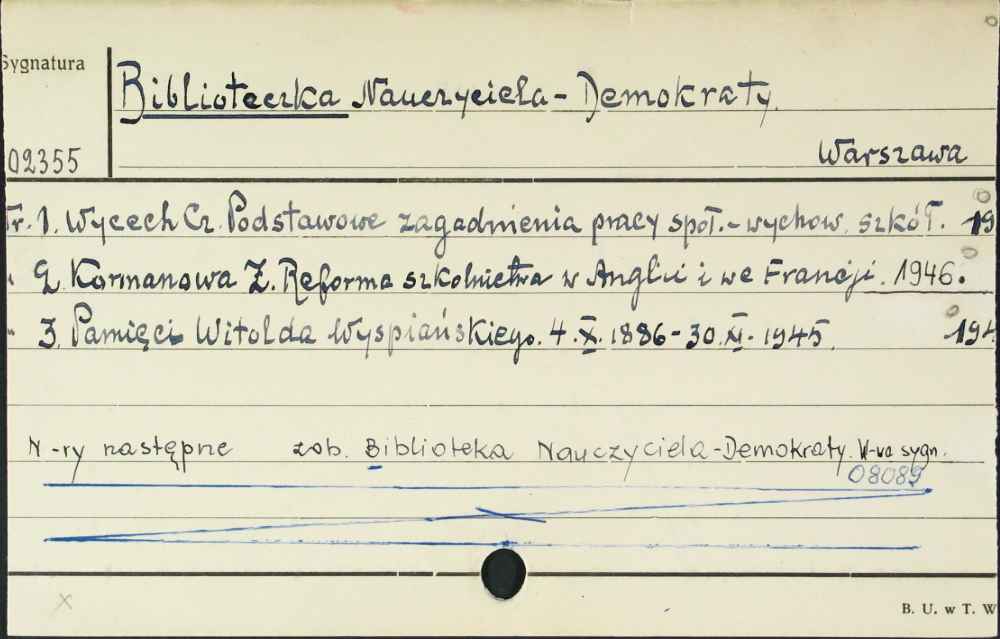 Sygnatura
Biblioteczka Nauczyciela-Demokraty.
02355
Warszawa
Nr. 1. Wycech Cz. Podstawowe zagadnienia pracy społ.-wychow. szkół. 19
" 2. Kormanowa Ż. Reforma szkolnictwa w Anglii i we Francji. 1946.
" 3. Pamięci Witolda Wyspiańskiego. 4.X.1886-30.XI.1945. 194
N-ry następne zob. Biblioteka Nauczyciela-Demokraty. W-wa sygn.
08089
B. U. w T. W